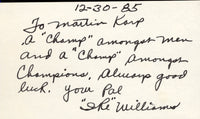 12-30-85
To Martin Karp
A "Champ" amongst men
and a "Champ" amongst
Champions, Always good
luck. Your Pal
"Ike" Williams